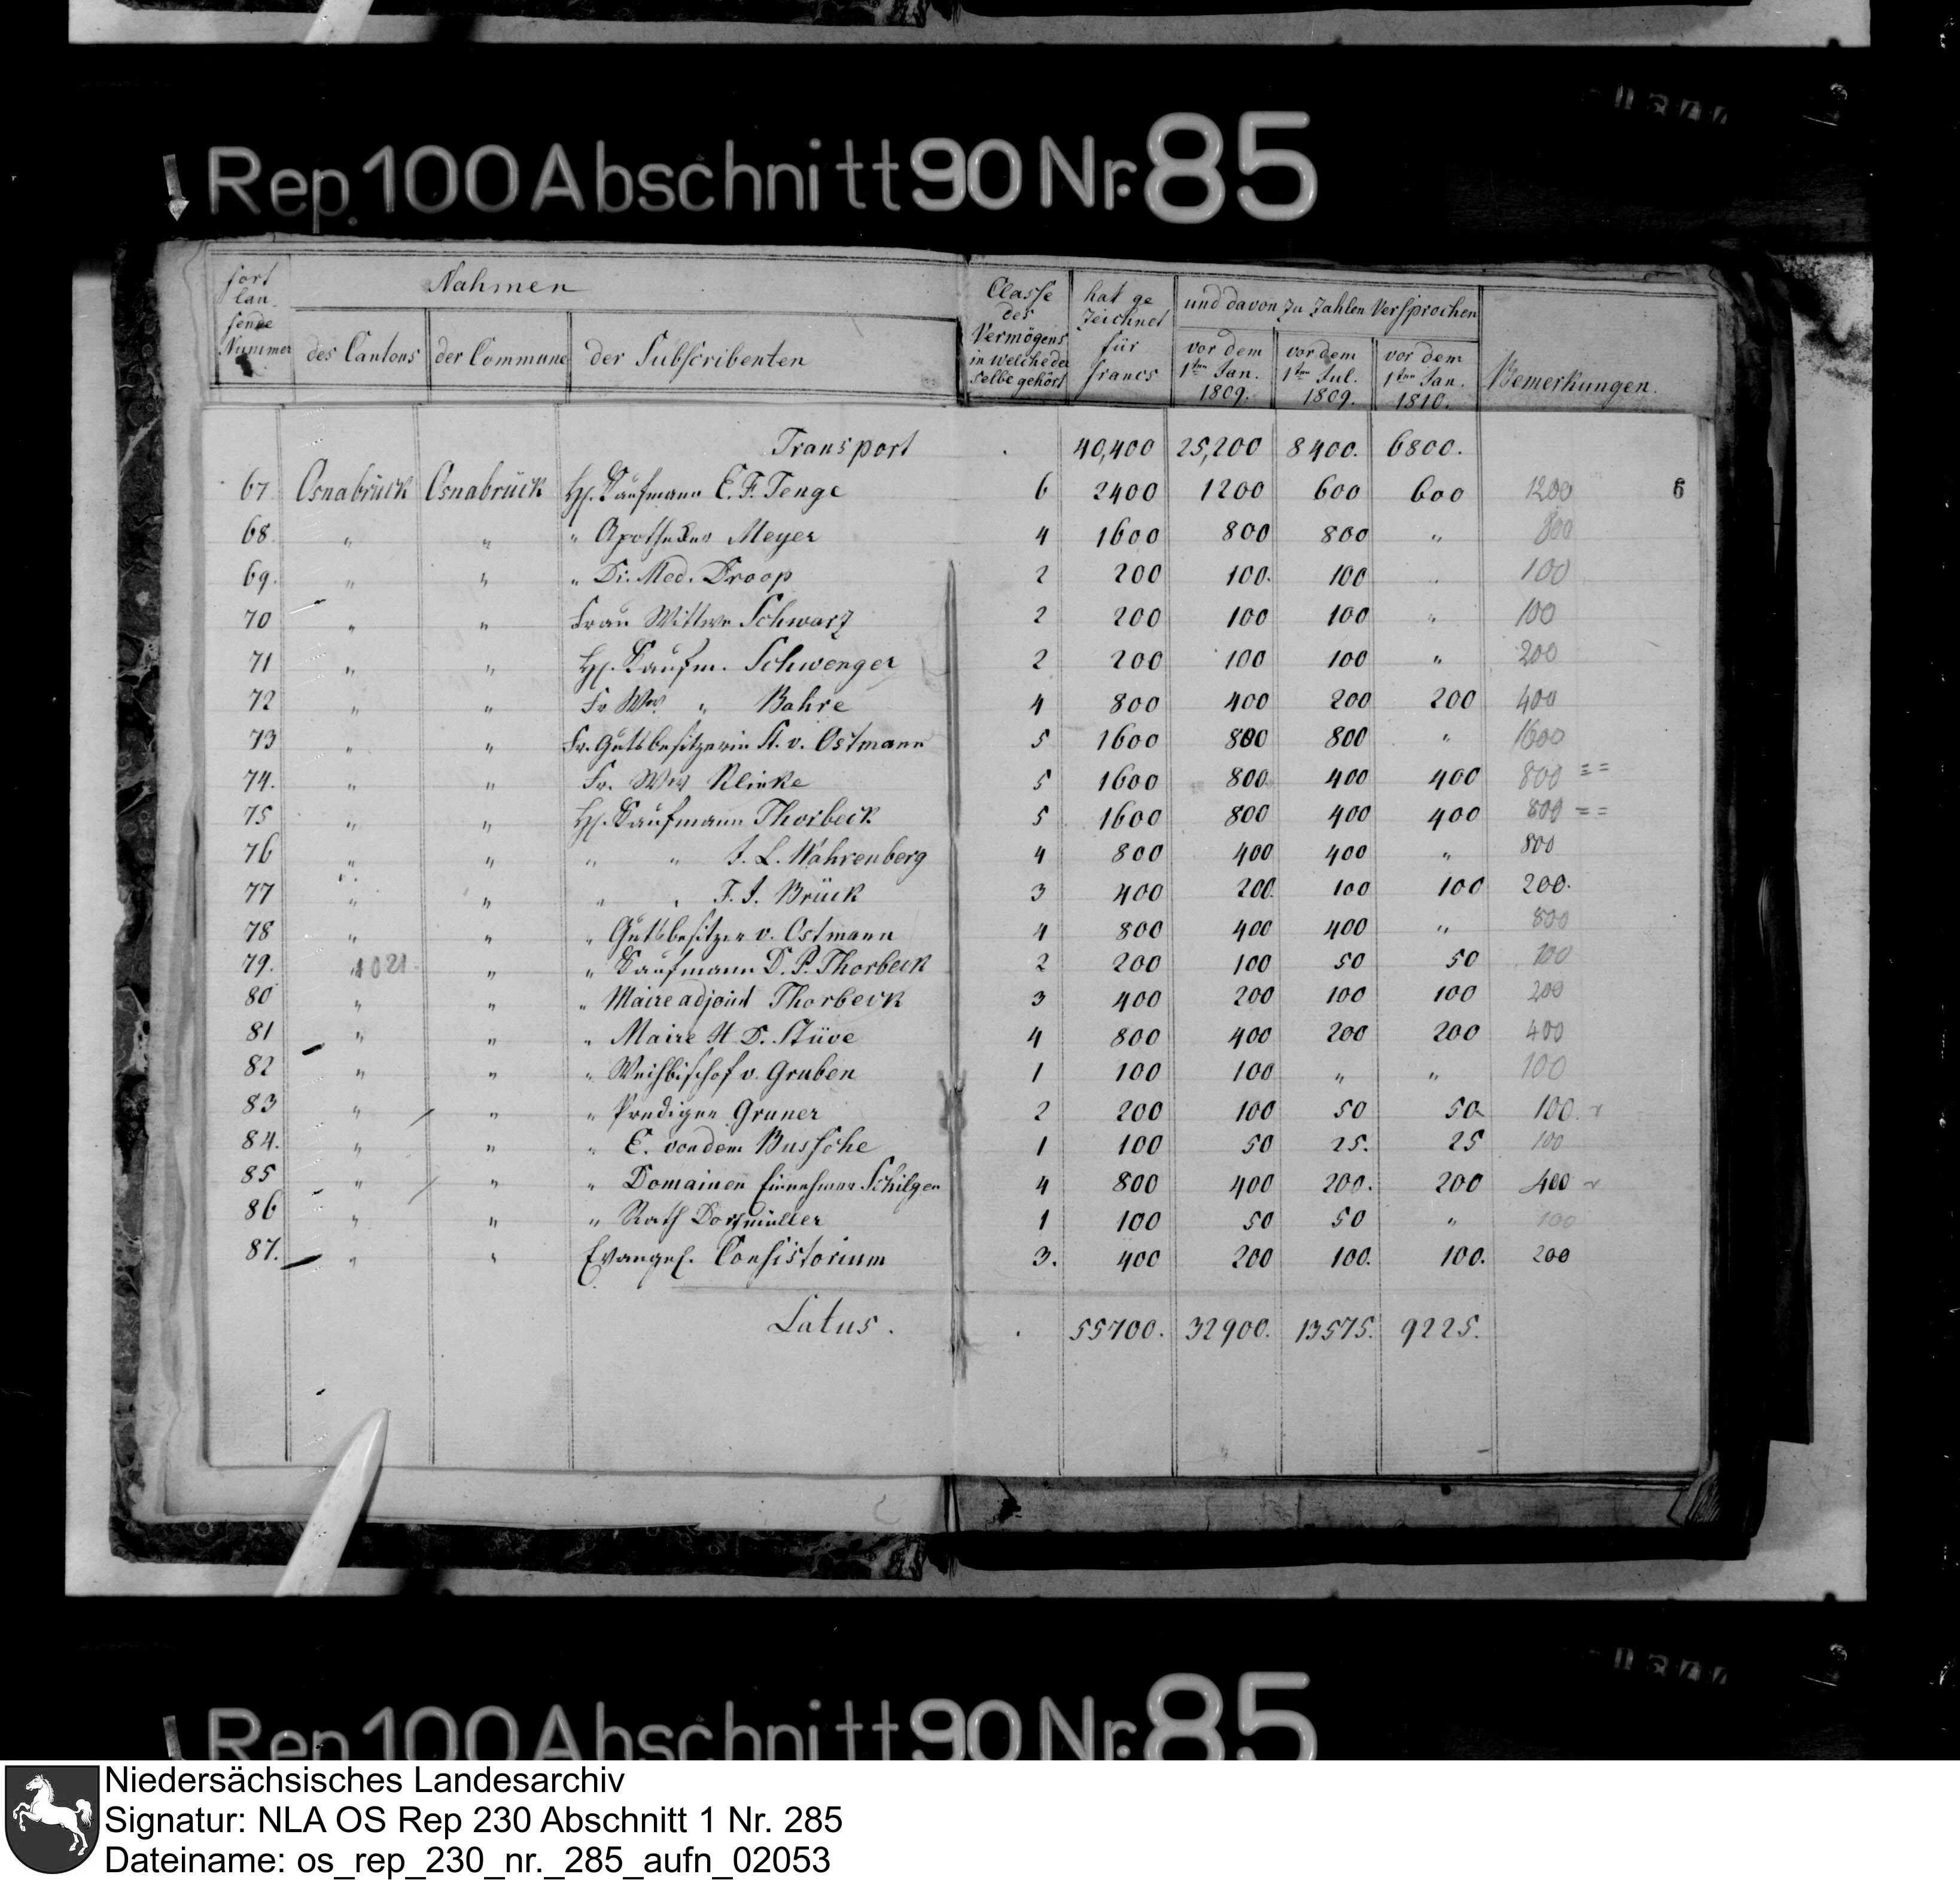 Rep. 100 Abschnitt 90 Nr. 85
fort lau- fende Nummer | Nahmen | Classe des Vermögens in welche der selbe gehört | hat ge zeichnet für francs | und davon zu zahlen versprochen | Bemerkungen.
des Cantons | der Commune | der Subscribenten | vor dem 1ten Jan. 1809. | vor dem 1ten Jul. 1809. | vor dem 1ten Jan. 1810.
Transport . 40,400 25,200 8400. 6800.
67 Osnabrück Osnabrück H. Kaufmann E. F. Tenge 6 2400 1200 600 600 1200 6
68. " " " Apotheker Meyer 4 1600 800 800 " 800
69. " " " Dr. Med. Droop 2 200 100. 100 . 100
70 " " Frau Wittwe Schwarz 2 200 100 100 " 100
71 " " H. Kaufm. Schwenger 2 200 100 100 " 200
72 " " Fr Ww " Bahre 4 800 400 200 200 400
73 " " Fr. Gutsbesitzerin H. v. Ostmann 5 1600 800 800 " 1600
74. " " Fr. Ww Klinke 5 1600 800 400 400 800 = =
75 " " H. Kaufmann Thorbeck 5 1600 800 400 400 800 = =
76 " " " " J. L. Wahrenberg 4 800 400 400 " 800
77 " " " " F. J. Brück 3 400 200. 100 100 200.
78 " " " Gutsbesitzer v. Ostmann 4 800 400 400 " 800
79. 1021. " " Kaufmann D. P. Thorbeck 2 200 100 50 50 100
80 " " " Maire adjoint Thorbeck 3 400 200 100 100 200
81 " " " Maire H. D. Stüve 4 800 400 200 200 400
82 " " " Weihbischof v. Gruben 1 100 100 " " 100
83 " " " Prediger Gruner 2 200 100 50 50 100.
84. " " " E. von dem Bussche 1 100 50 25. 25 100
85 " " " Domainen Einnehmer Schilgen 4 800 400 200. 200 400
86 " " " Rath Dorfmüller 1 100 50 50 " 100
87. " " Evangel. Consistorium 3. 400 200 100. 100. 200
Latus . . 55700. 32900. 13575. 9225.
Rep. 100 Abschnitt 90 Nr. 85
Niedersächsisches Landesarchiv
Signatur: NLA OS Rep 230 Abschnitt 1 Nr. 285
Dateiname: os_rep_230_nr._285_aufn_02053